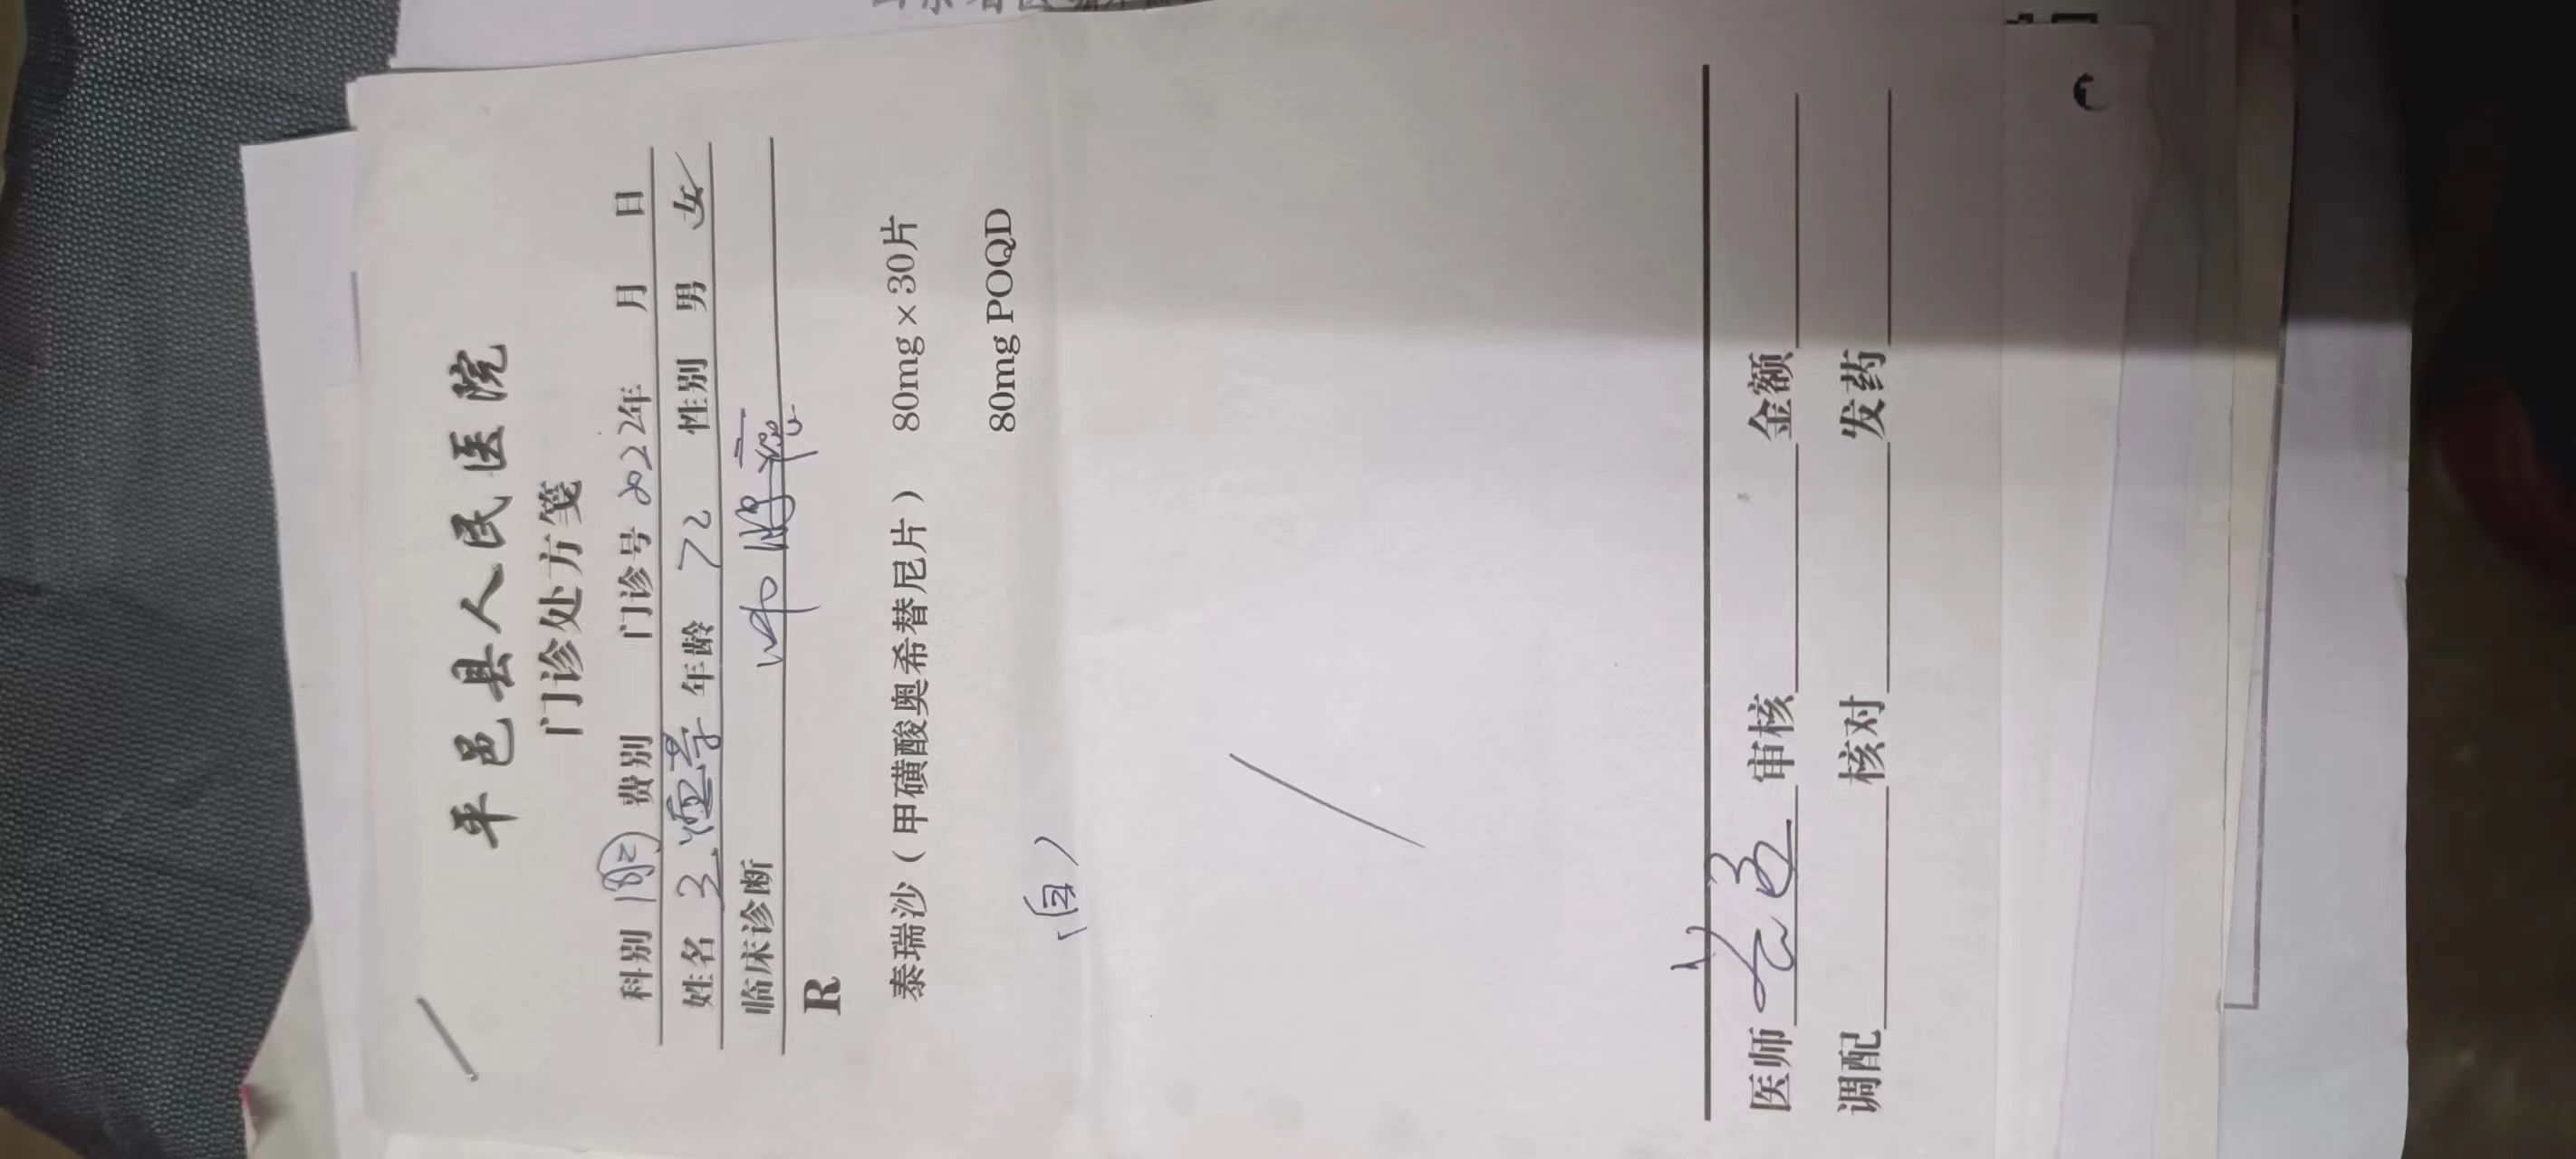 平邑县人民医院
门诊处方笺
科别 费别 门诊号 2022年 月 日
姓名 年龄 72 性别 男 女✓
临床诊断 肺腺癌
R
泰瑞沙（甲磺酸奥希替尼片） 80mg×30片
80mg POQD
医师 审核 金额
调配 核对 发药